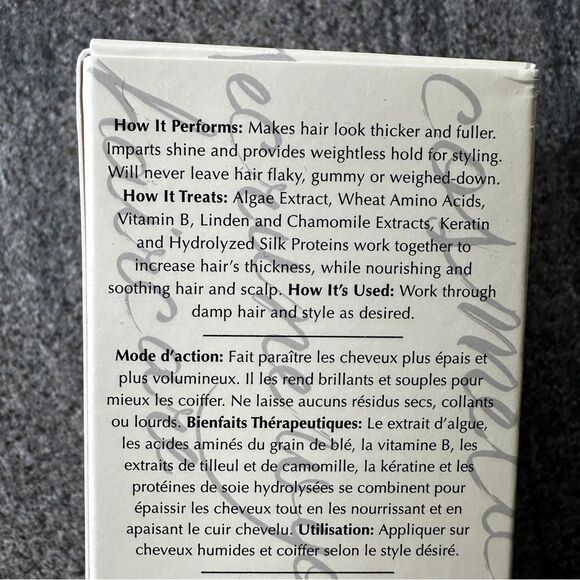 How It Performs: Makes hair look thicker and fuller.
Imparts shine and provides weightless hold for styling.
Will never leave hair flaky, gummy or weighed-down.
How It Treats: Algae Extract, Wheat Amino Acids,
Vitamin B, Linden and Chamomile Extracts, Keratin
and Hydrolyzed Silk Proteins work together to
increase hair's thickness, while nourishing and
soothing hair and scalp. How It's Used: Work through
damp hair and style as desired.
Mode d'action: Fait paraître les cheveux plus épais et
plus volumineux. Il les rend brillants et souples pour
mieux les coiffer. Ne laisse aucuns résidus secs, collants
ou lourds. Bienfaits Thérapeutiques: Le extrait d'algue,
les acides aminés du grain de blé, la vitamine B, les
extraits de tilleul et de camomille, la kératine et les
protéines de soie hydrolysées se combinent pour
épaissir les cheveux tout en les nourrissant et en
apaisant le cuir chevelu. Utilisation: Appliquer sur
cheveux humides et coiffer selon le style désiré.